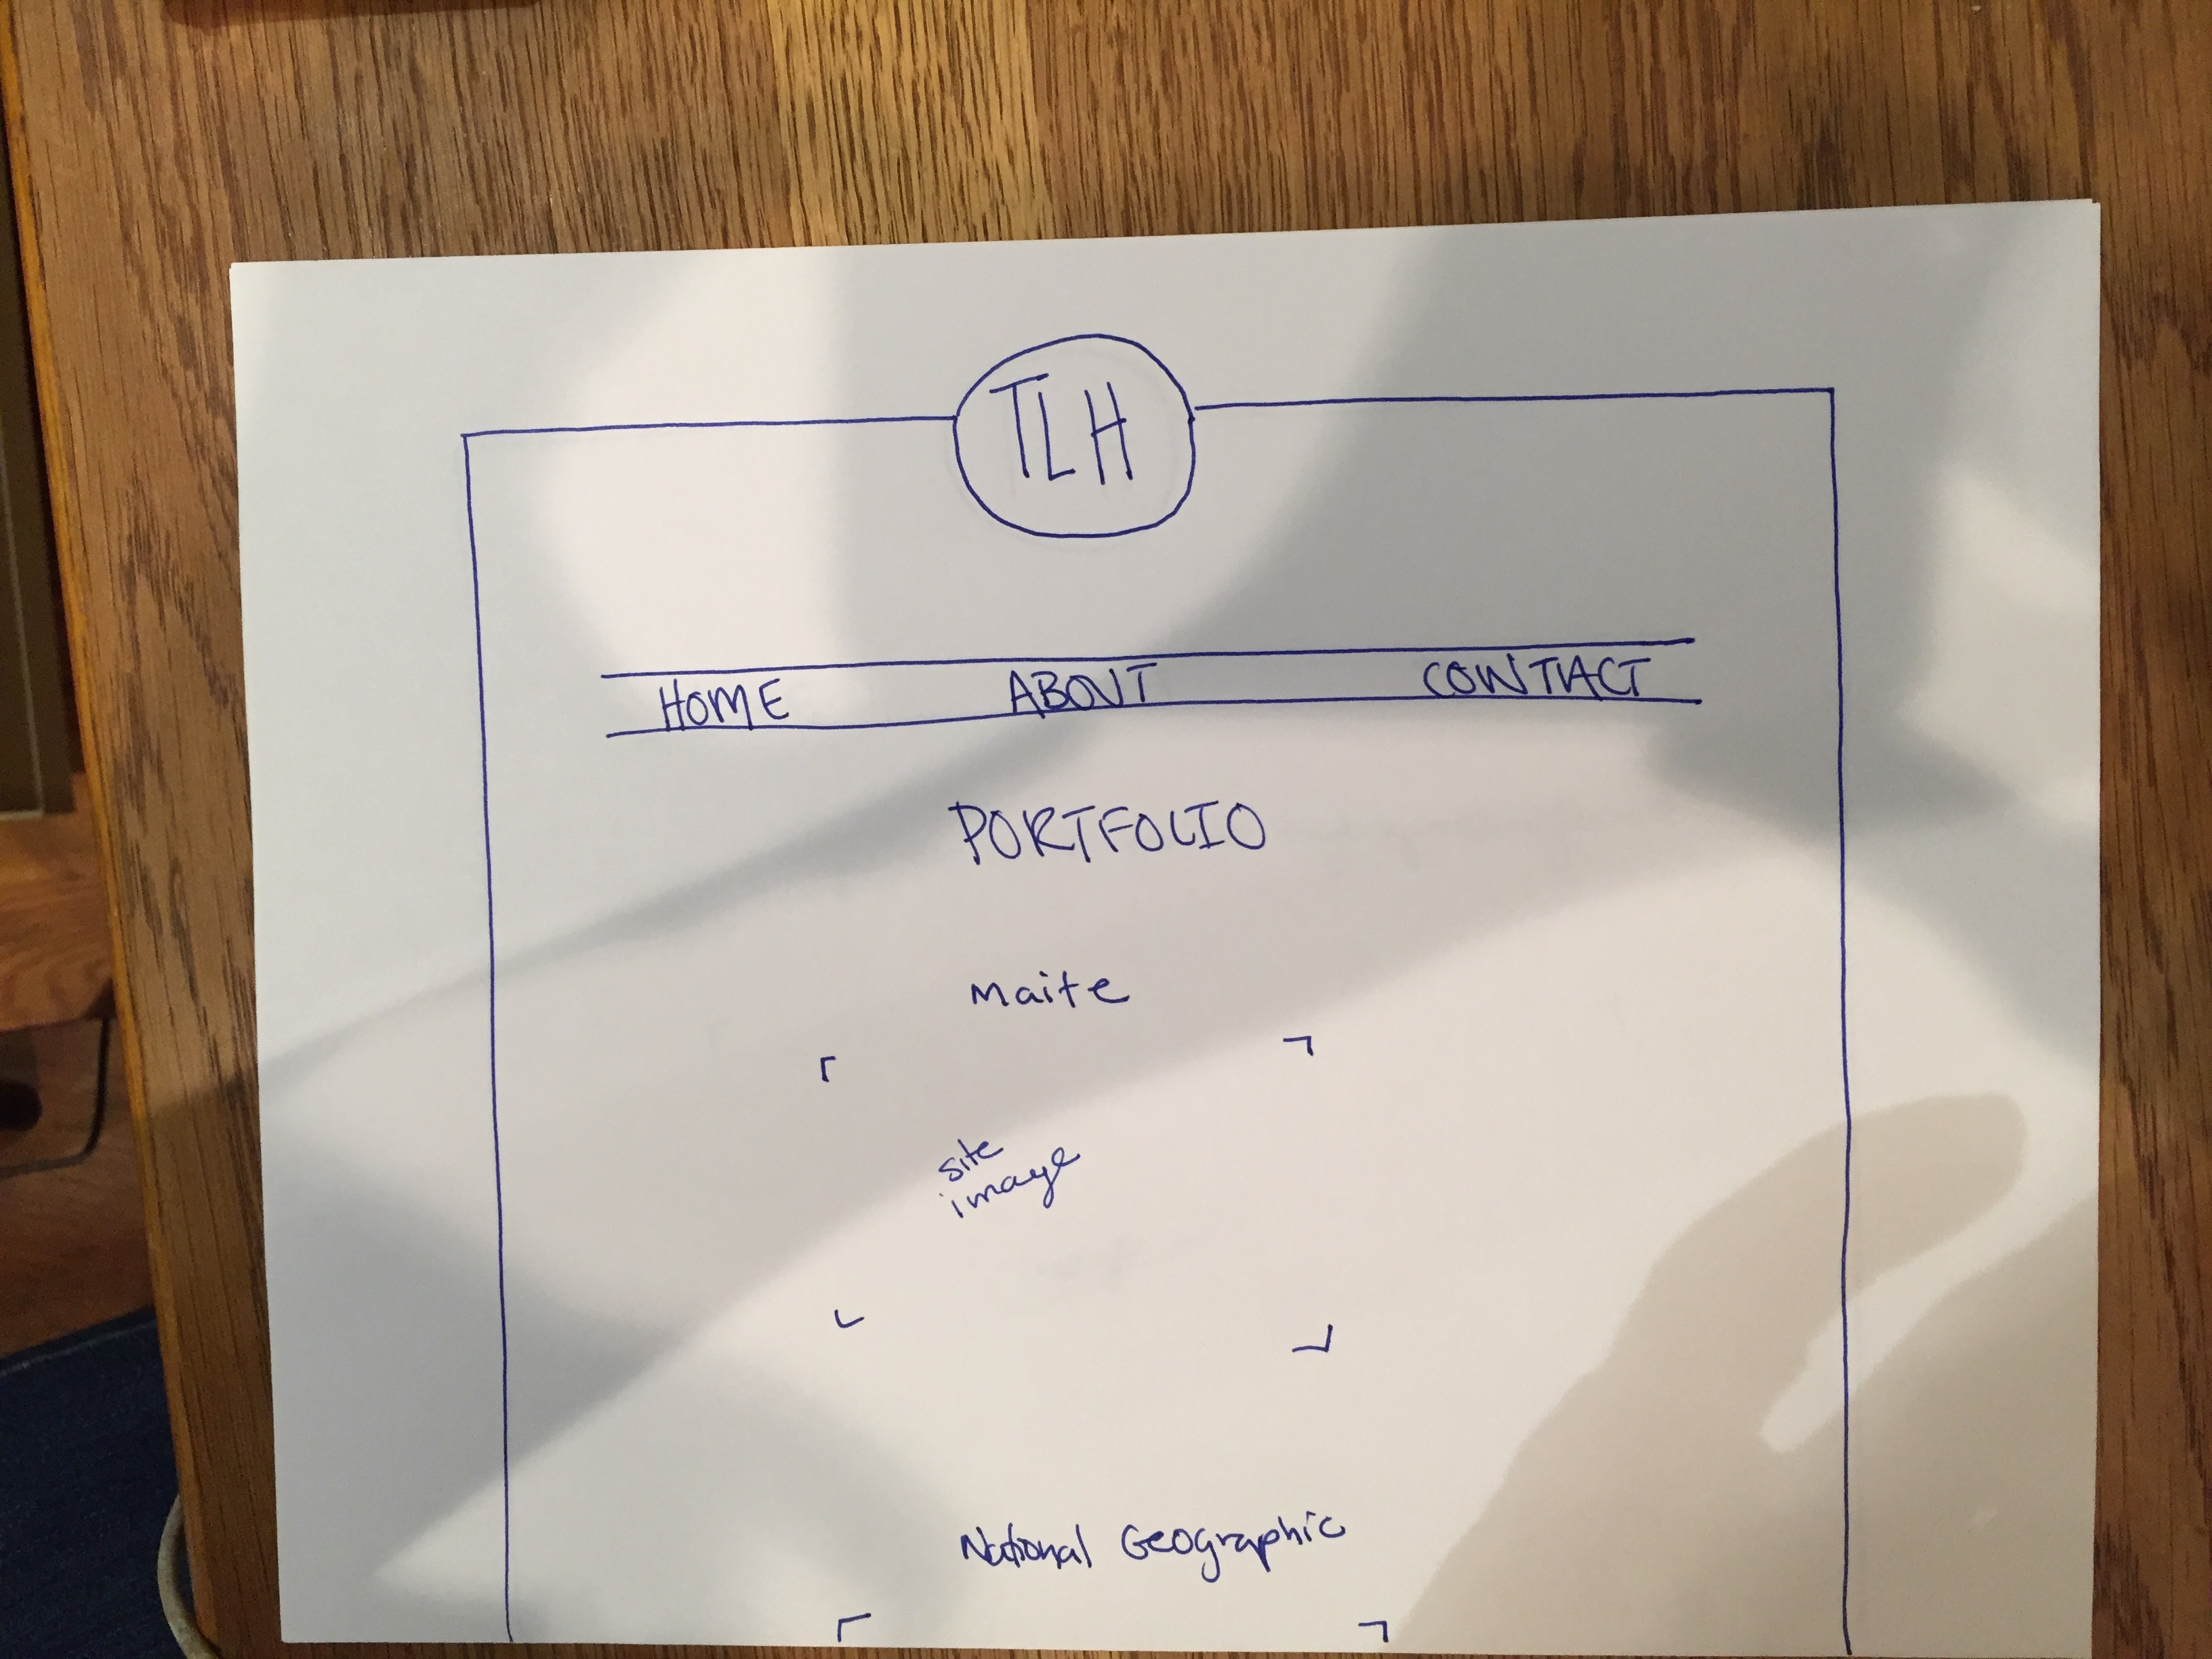 TLH
HOME ABOUT CONTACT
PORTFOLIO
Maite
site
image
National Geographic